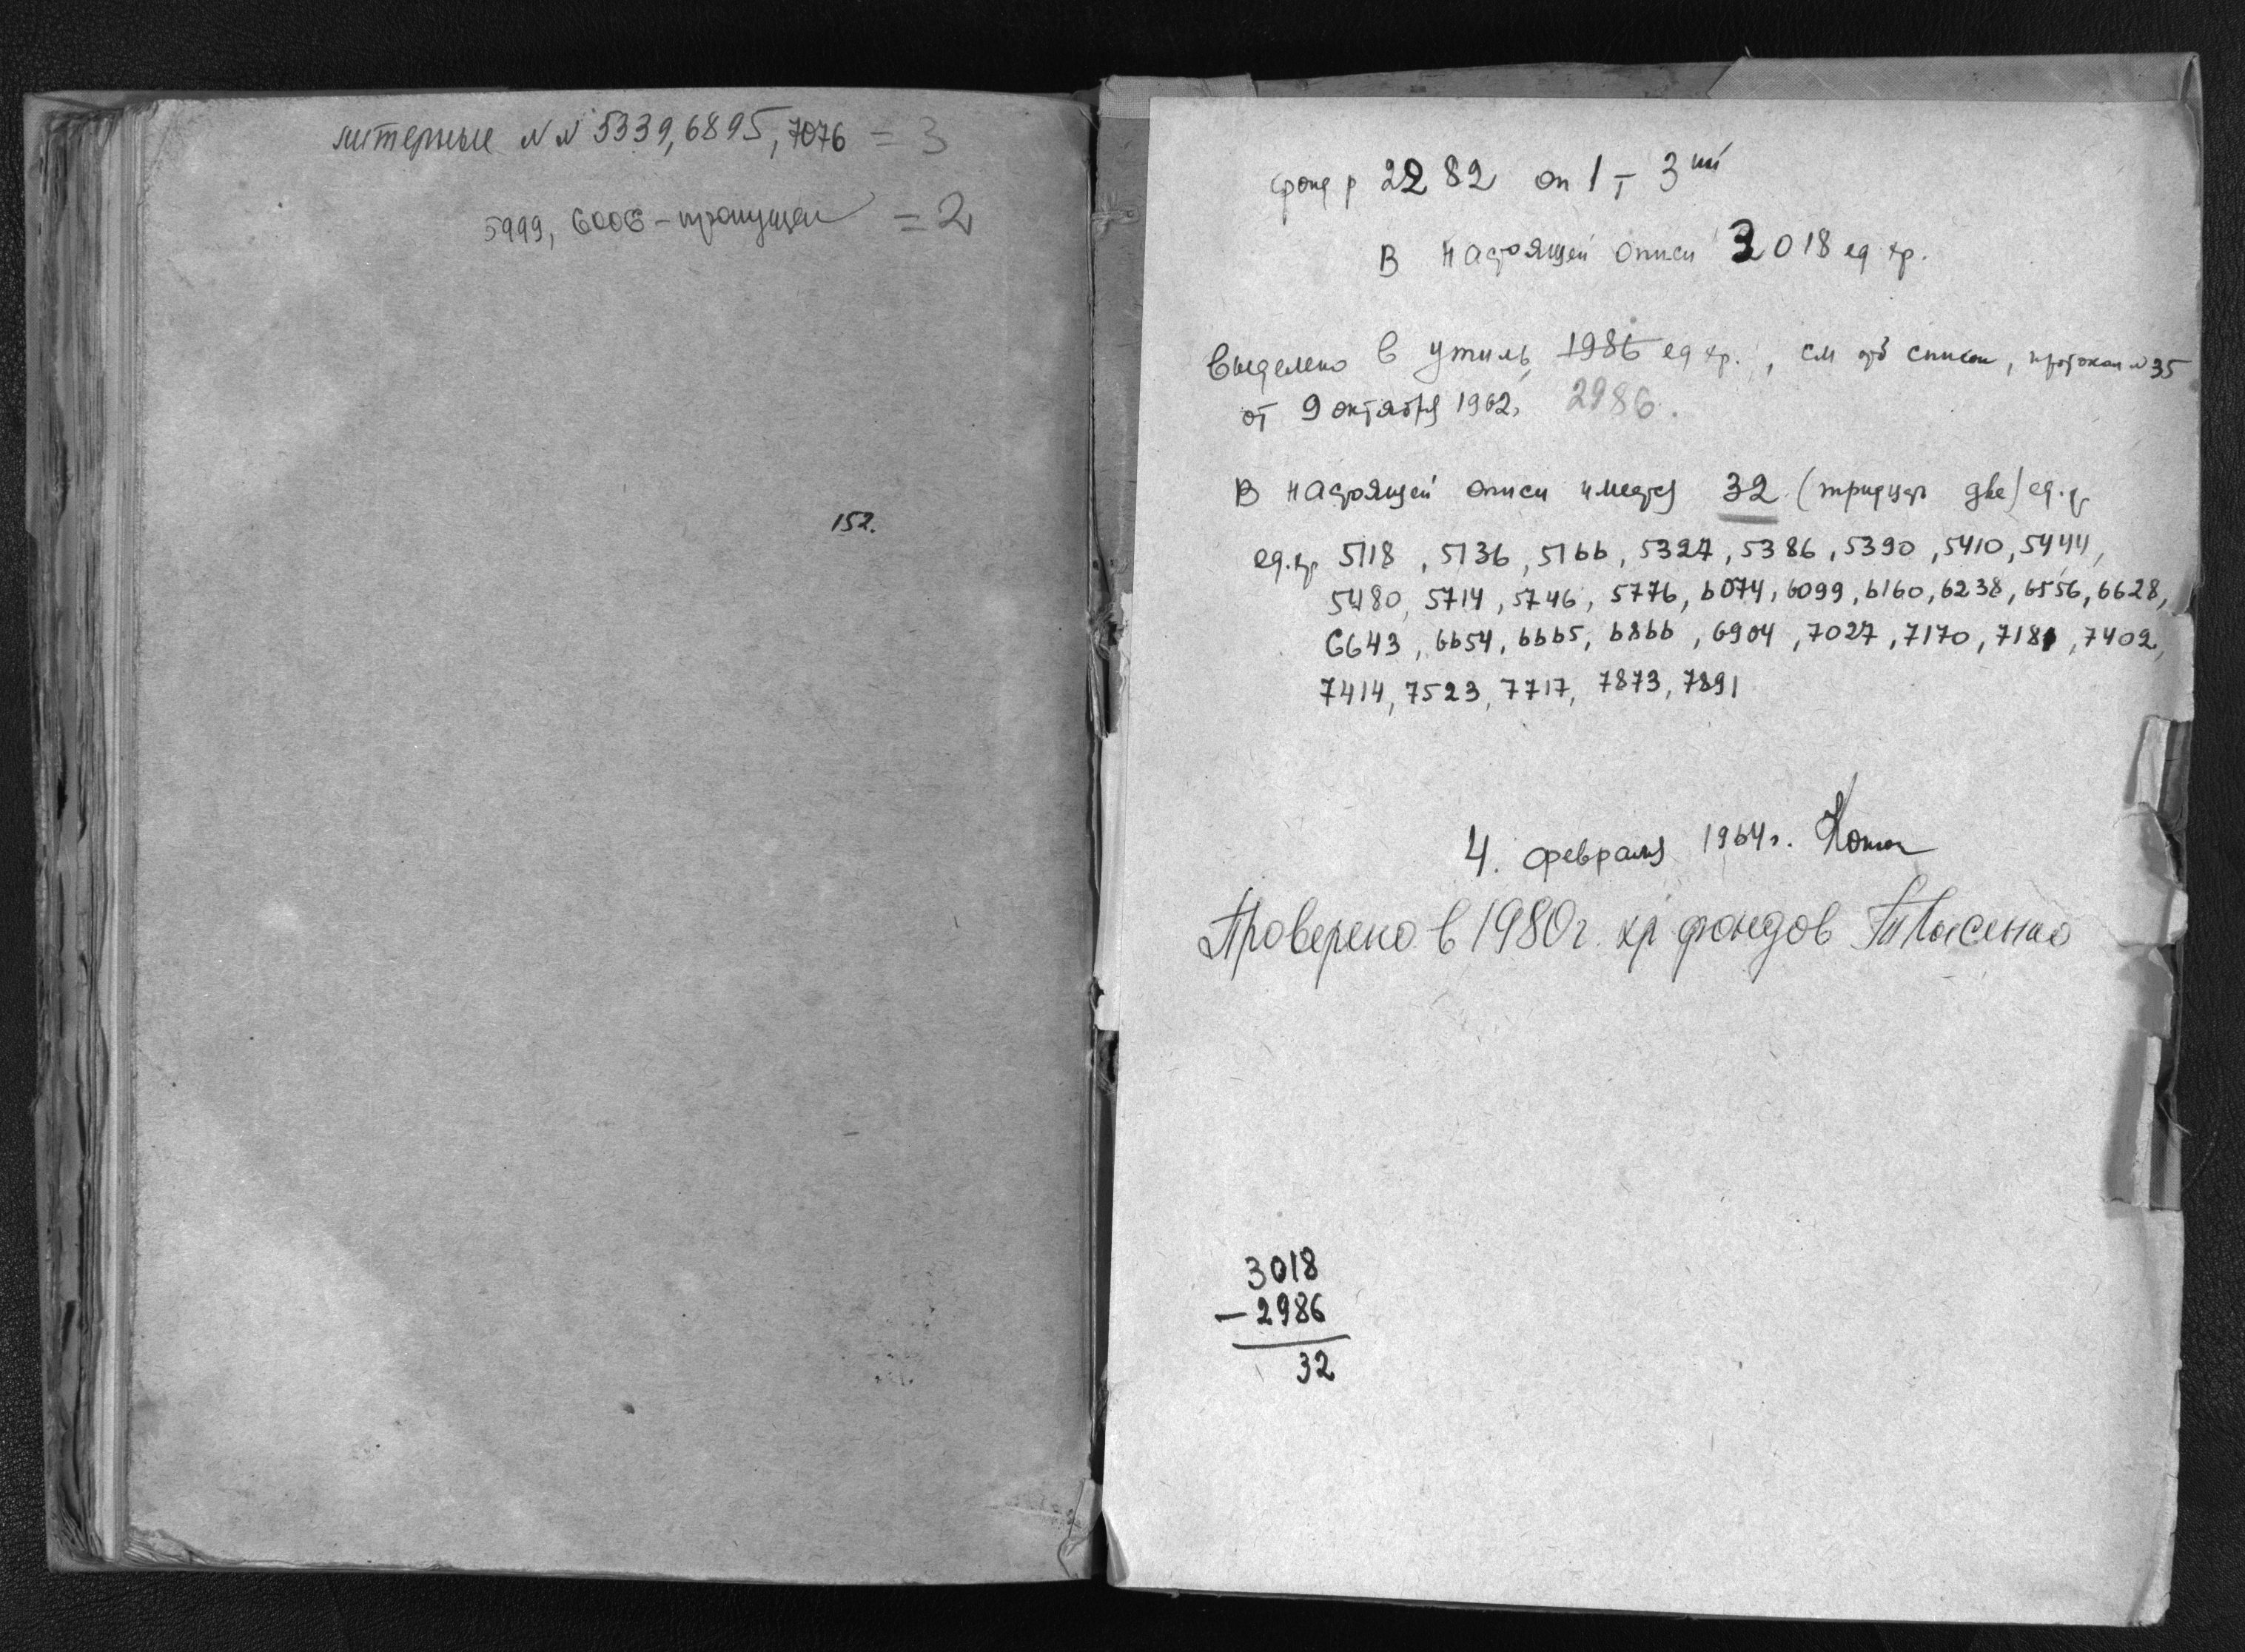 литерные NN 5339, 6895, 7076 = 3
5999, 6006 - пропущен = 2
152.
фонд р 2282 оп 1 т 3ий
В настоящей описи 3018 ед хр.
Выделено в утиль 1986 ед хр., см список, протокол N 35
от 9 октября 1962г. 2986.
В настоящей описи имеется 32 (тридцать две) ед. хр
ед. хр 5118, 5136, 5166, 5327, 5386, 5390, 5410, 5444,
5480, 5714, 5746, 5776, 6074, 6099, 6160, 6238, 6556, 6628,
6643, 6654, 6665, 6866, 6904, 7027, 7170, 7181, 7402,
7414, 7523, 7717, 7873, 7891
4. февраля 1964г.
Проверено в 1980г. хр фондов Лысенко
3018
- 2986
32